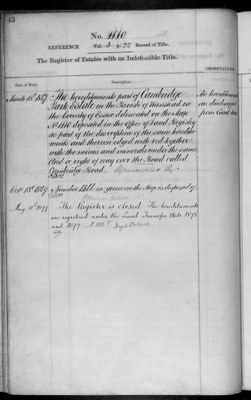 43
No. 1110
REFERENCE Record of Title.
The Register of Estates with an Indefeasible Title.
Date of Entry. Description. OBSERVATIONS.
March 15th 1877 The hereditaments part of Cambridge
Park Estate in the Parish of Wanstead in
the County of Essex delineated on the Map
No. 1110 deposited in the Office of Land Registry
as part of the description of the same heredita
ments and thereon edged with red together
with the mines and minerals under the same
And a right of way over the Road called
Cambridge Road.
The hereditaments
are discharged
from
Number 1 in green on the Map is disposed of
May 11th 1899 The Register is closed. The hereditaments
are registered under the Land Transfer Acts 1875
and 1897